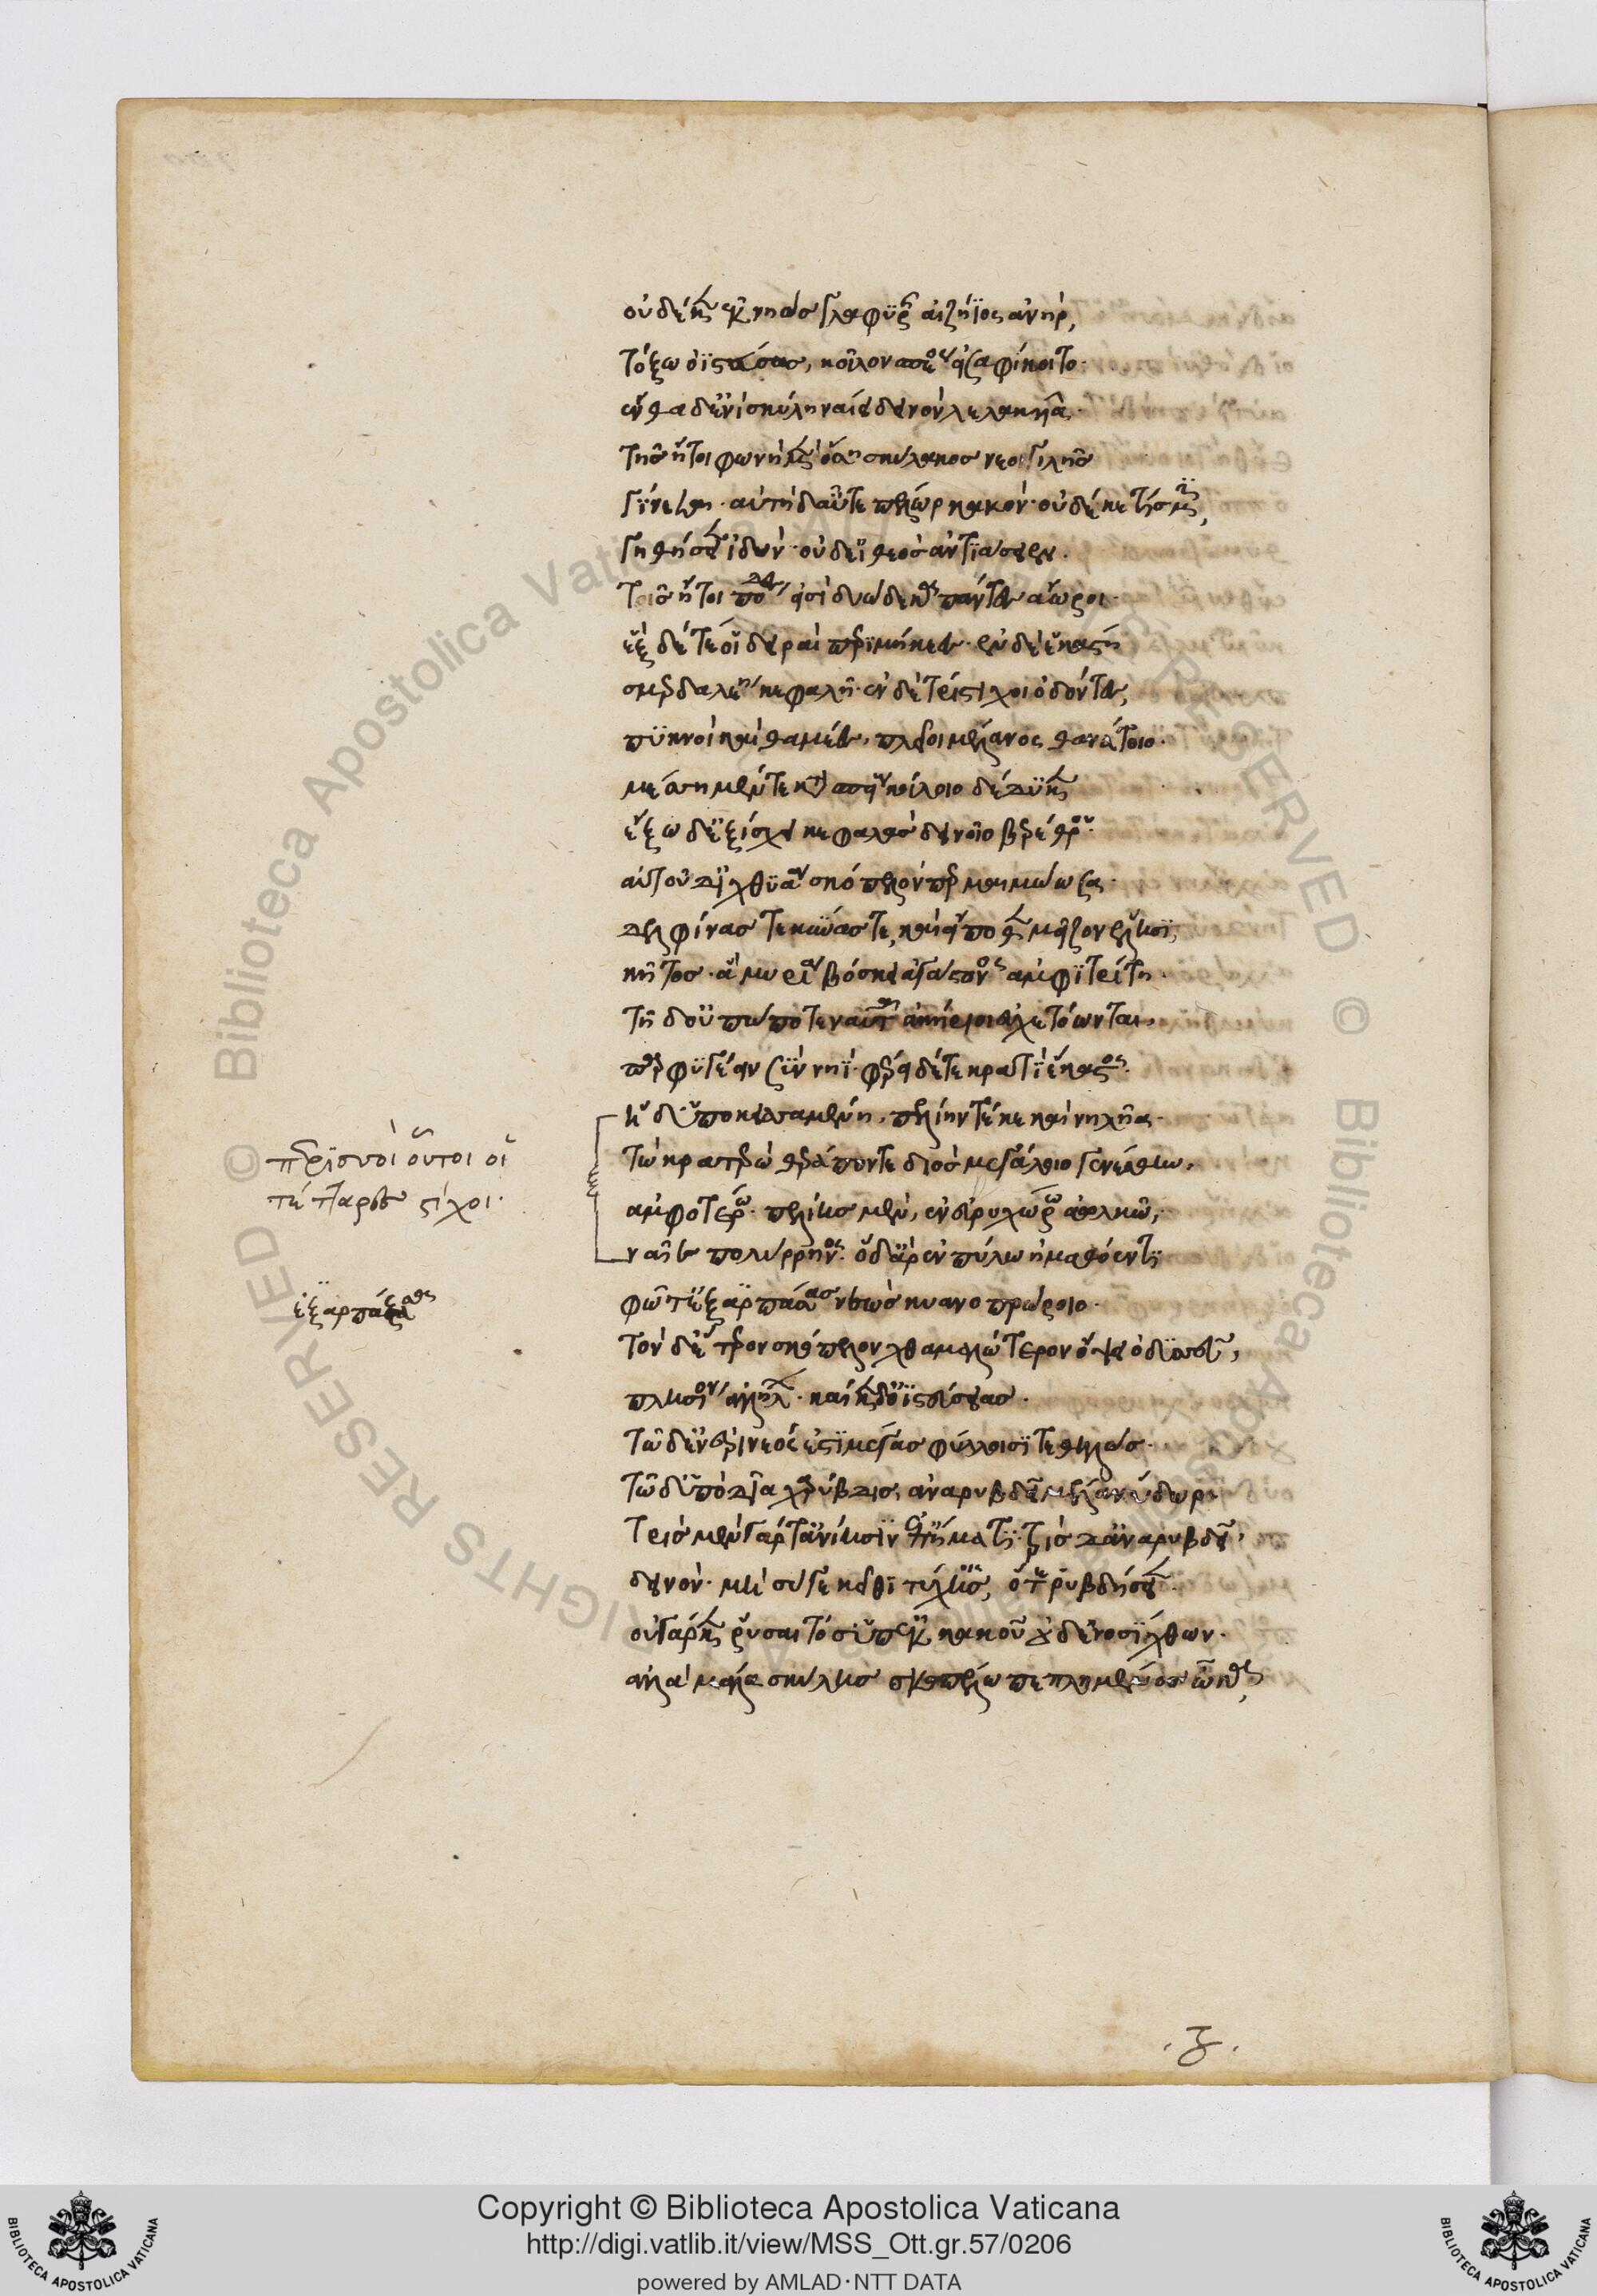 οὐδέ κεν ἐκ νηὸς γλαφυρῆς αἰζήϊος ἀνήρ,
τόξω ὀϊστεύσας, κοῖλον σπέος εἰσαφίκοιτο.
ἔνθα δ' ἐνὶ σκύλη ναίει δεινὸν λελακυῖα.
τῆς ἤτοι φωνὴ μὲν ὅση σκύλακος νεογιλῆς
γίνεται. αὐτὴ δ' αὖτε πέλωρ κακόν. οὐδέ κε τίς μιν,
γηθήσειεν ἰδών. οὐδ' εἰ θεὸς ἀντιάσειεν.
τῆς ἤτοι πόδες εἰσὶ δυώδεκα πάντες ἄωροι.
ἓξ δέ τέ οἱ δειραὶ περιμήκεες. ἐν δὲ ἑκάστη
σμερδαλέη κεφαλή. ἐν δὲ τρίστιχοι ὀδόντες,
πυκνοὶ καὶ θαμέες, πλεῖοι μέλανος θανάτοιο.
μέσση μέν τε κατὰ σπείους κοίλοιο δέδυκεν
ἔξω δ' ἐξίσχει κεφαλὰς δεινοῖο βερέθρου.
αὐτοῦ δ' ἰχθυάα σκόπελον περιμαιμώωσα.
δελφῖνάς τε κύνας τε, καὶ εἴ ποθεν μεῖζον ἕλησι
κῆτος. ἃ μυρία βόσκει ἀγάστονος ἀμφιτρίτη.
τῆ δ' οὔ πώποτε ναῦται ἀκήριοι εὐχετόωνται
παρφυγέειν σὺν νηΐ. φέρει δέ τε κρατὶ ἕκαστος.
ἡ δ' ὑποκυσαμένη, πελίην τέκε καὶ νηλῆα.
περισσοὶ οὗτοι οἱ
τέσσαρες στίχοι.
τὼ κρατερὼ θεράποντε διὸς μεγάλοιο γενέσθην.
ἀμφοτέρω. πελίης μὲν, ἐν εὐρυχόρω ἰαολκῶ,
ναῖε πολύρρηνος. ὁ δ' ἄρ' ἐν πύλω ἠμαθόεντι
φῶτ' ἐξαρπάξας νεὼς κυανοπρώροιο.
ἐξαρπάξασα
τὸν δ' ἕτερον σκόπελον χθαμαλώτερον ὄψει ὀδυσσεῦ,
πλησίον ἀλλήλων. καί κεν διοϊστεύσειας.
τῶ δ' ἐν ἐρινεός ἐστι μέγας φύλλοισι τεθηλώς.
τῶ δ' ὑπὸ δῖα χάρυβδις ἀναρυβδεῖ μέλαν ὕδωρ.
τρὶς μὲν γάρ τ' ἀνίησιν ἐπ' ἤματι. τρὶς δ' ἀναρυβδεῖ,
δεινόν. μὴ σύ γε κεῖθι τύχης, ὅτε ῥυβδήσειεν.
οὐ γάρ κεν ῥύσαιτό σ' ὑπὲκ κακοῦ οὐδ' ἐνοσίχθων.
ἀλλὰ μάλα σκύλης σκοπέλω πεπλημένος ὦκα,